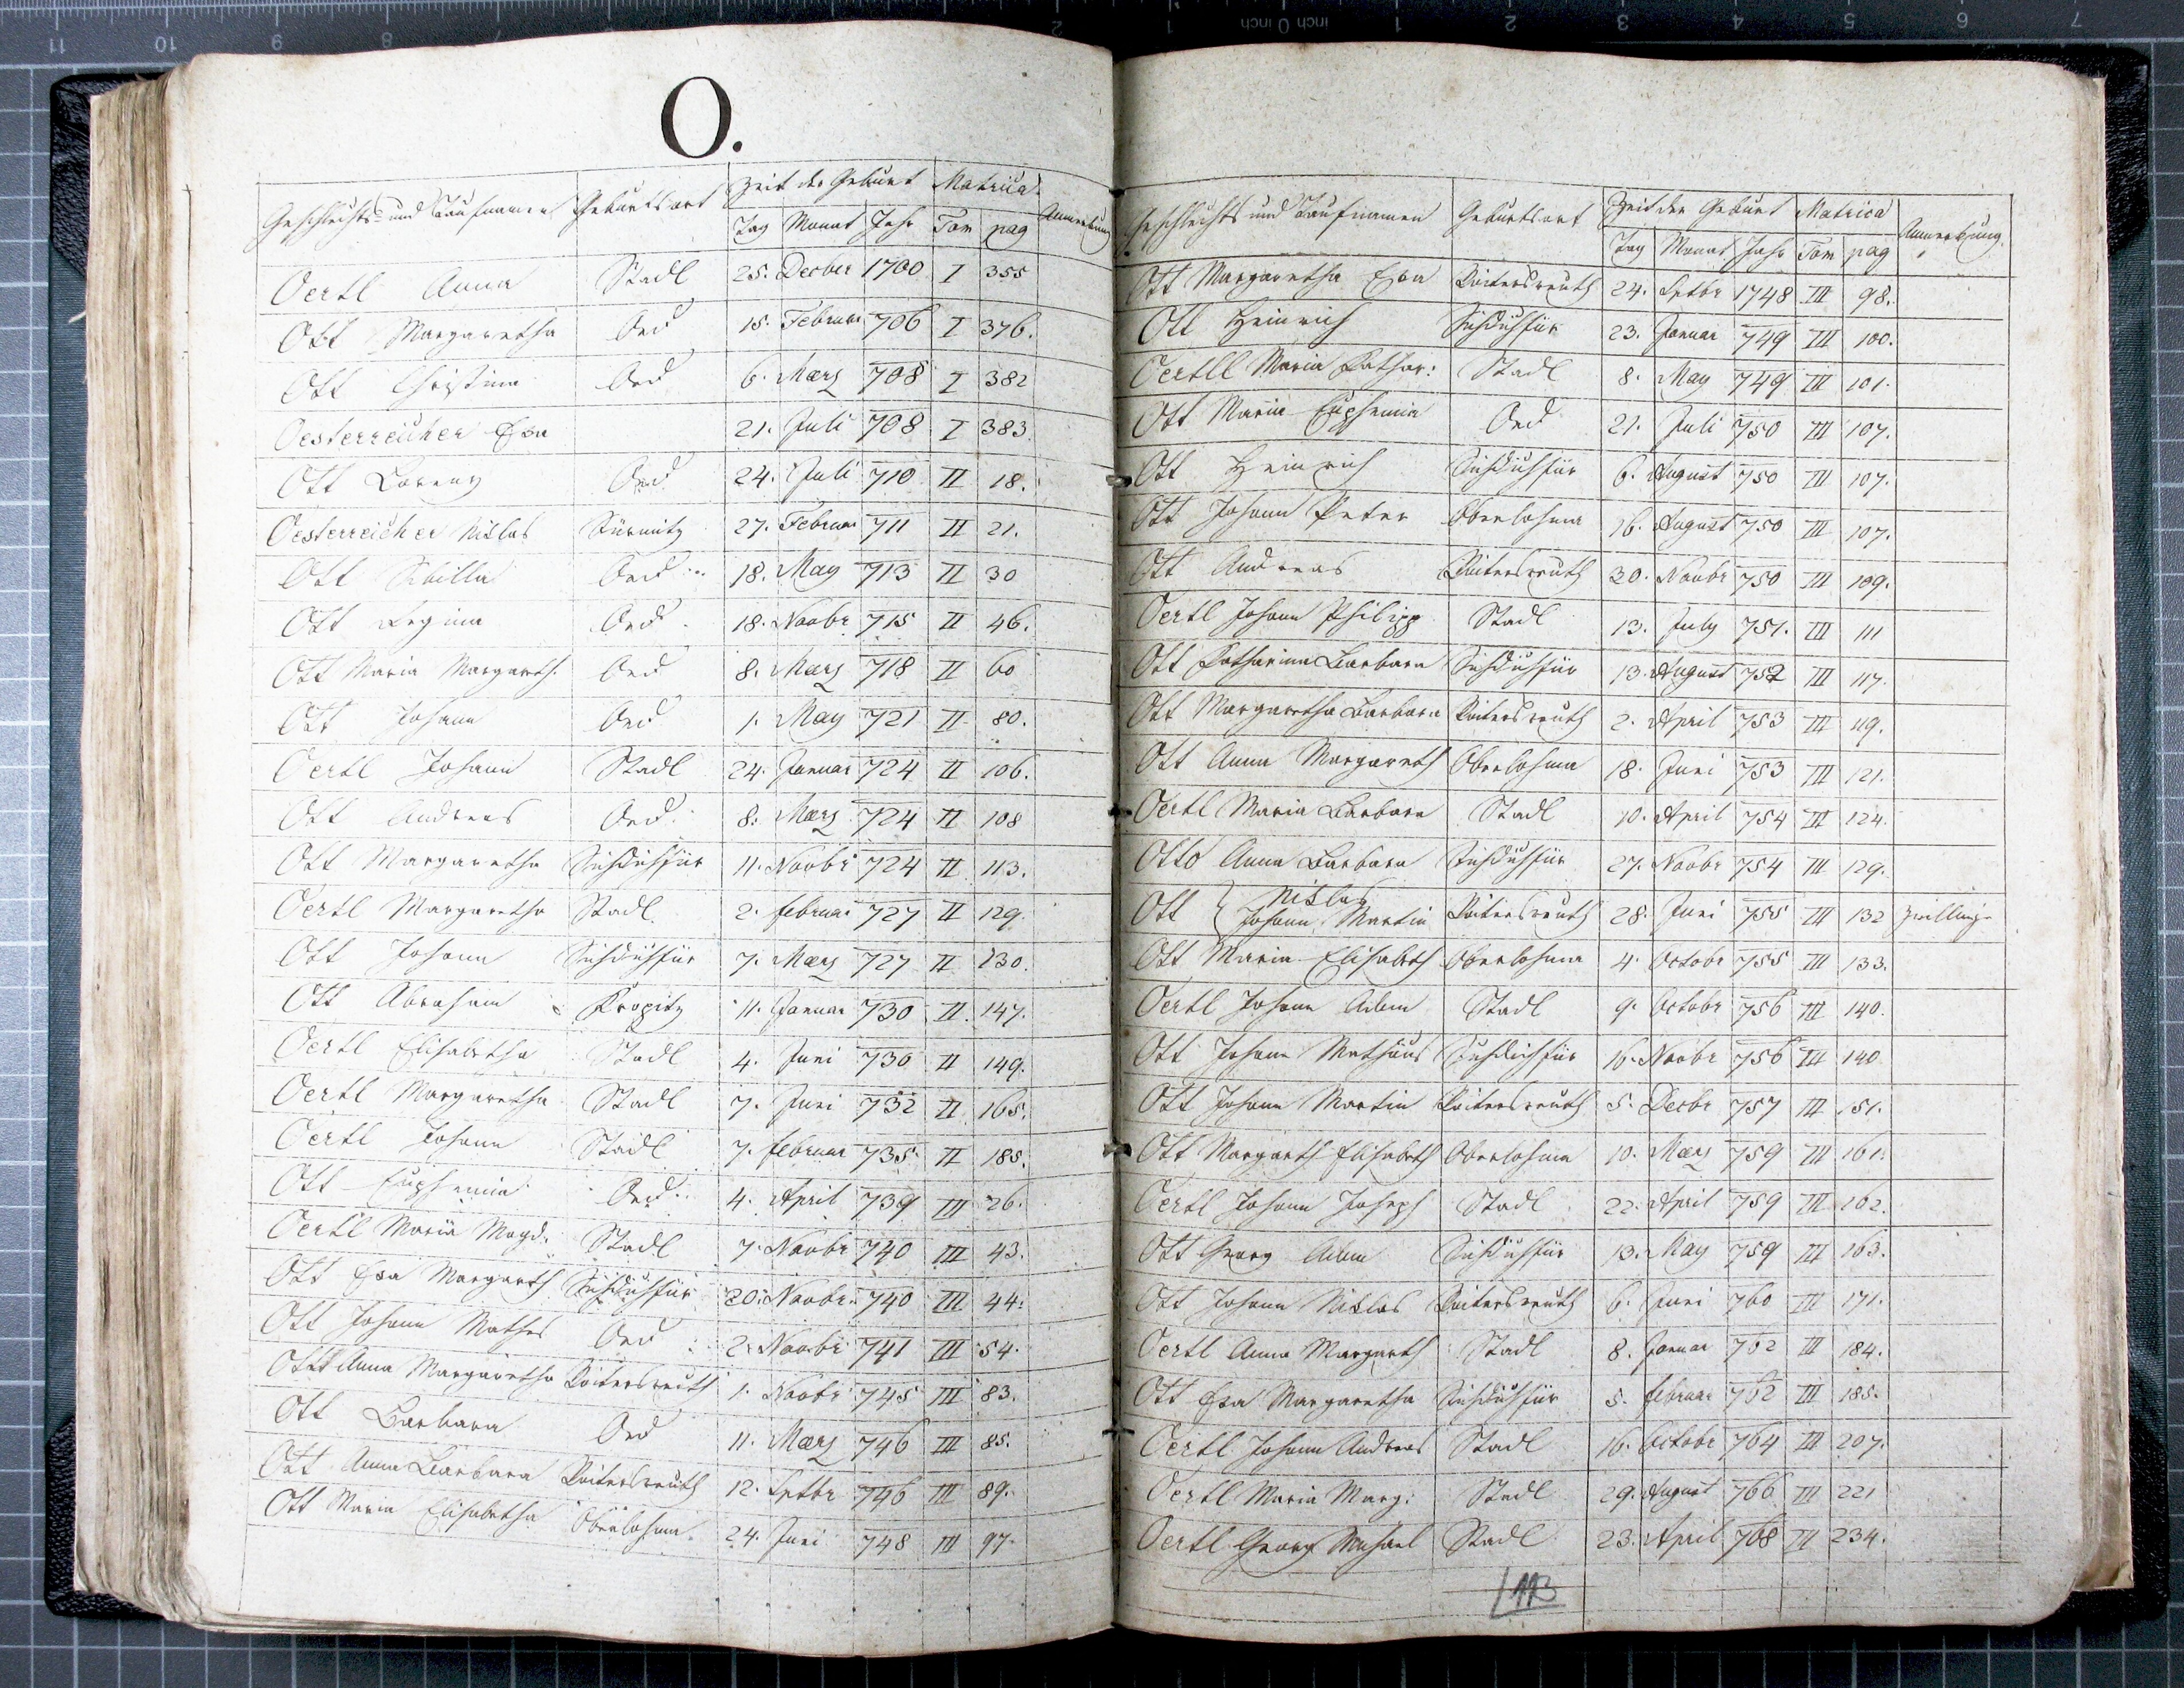 O.
Geschlechts- und Taufnamen Geburtsort Zeit der Geburt Matrica Anmerkung
Tag Monat Jahr Tom pag
Oertl Anna Stadl 25. Decber 1700 I 355
Ott Margaretha Oed 15. Februar 706 I 376.
Ott Christina Oed 6. Marz 708 I 382
Oesterreicher Eva 21. Juli 708 I 383
Ott Lorenz Oed 24. Juli 710 II 18.
Oesterreicher Niklas 27. Februar 711 II 21.
Ott Sibilla Oed 18. May 713 II 30
Ott Regina Oed 18. Novbr 715 II 46.
Ott Maria Margareth. Oed 8. Marz 718 II 60
Ott Johann Oed 1. May 721 II 80.
Oertl Johann Stadl 24. Januar 724 II 106.
Ott Andreas Oed 8. Marz 724 II 108
Ott Margaretha 11. Novbr 724 II 113.
Oertl Margaretha Stadl 2. Februar 727 II 129.
Ott Johann 7. Marz 727 II 130.
Ott Abraham Kropitz 11. Januar 730 II 147.
Oertl Elisabetha Stadl 4. Juni 730 II 149.
Oertl Margaretha Stadl 7. Juni 732 II 165.
Oertl Johann Stadl 7. Februar 735 II 185.
Ott Euphemia Oed 4. April 739 III 26.
Oertl Maria Magd. Stadl 7. Novbr 740 III 43.
Ott Eva Margareth 20. Novbr. 740 III 44.
Ott Johann Mathes Oed 2. Novbr 741 III 54.
Ott Anna Margaretha Voitersreuth 1. Novbr 745 III 83.
Ott Barbara Oed 11. Marz 746 III 85.
Ott Anna Barbara Voitersreuth 12. Sptbr 746 III 89.
Ott Maria Elisabetha Oberlohma 24. Juni 748 III 97.
Geschlechts und Taufnamen Geburtsort Zeit der Geburt Matrica Anmerkung.
Tag Monat Jahr Tom pag
Ott Margaretha Eva Voitersreuth 24. Sptbr 1748 III 98.
Ott Heinrich 23. Januar 749 III 100.
Oertll Maria Kathar: Stadl 8. May 749 III 101.
Ott Maria Euphemia Oed 21. Juli 750 III 107.
Ott Heinrich 6. August 750 III 107.
Ott Johann Peter Oberlohma 16. August 750 III 107.
Ott Andreas Voitersreuth 30. Novbr 750 III 109.
Oertl Johann Philipp Stadl 13. July 751. III 111
Ott Katharina Barbara 13. August 752 III 117.
Ott Margaretha Barbara Voitersreuth 2. April 753 III 119.
Ott Anna Margareth Oberlohma 18. Juni 753 III 121.
Oertl Maria Barbara Stadl 10. April 754 III 124.
Otto Anna Barbara 27. Novbr 754 III 129.
Niklas
Ott { Johann Martin Voitersreuth 28. Juni 755 III 132 Zwillinge
Ott Maria Elisabeth Oberlohma 4. Octobr 755 III 133.
Oertl Johann Adam Stadl 9. Octobr 756 III 140.
Ott Johann Mathäus 16. Novbr 756 III 140
Ott Johann Martin Voitersreuth 5. Decbr 757 III 151.
Ott Margareth Elisabeth Oberlohma 10. Marz 759 III 161.
Oertl Johann Joseph Stadl 22. April 759 III 162.
Ott Georg Adam 13. May 759 III 163.
Ott Johann Niklas Voitersreuth 6. Juni 760 III 171.
Oertl Anna Margareth Stadl 8. Januar 762 III 184.
Ott Eva Margaretha 5. Februar 762 III 185.
Oertl Johann Andreas Stadl 16. Octobr 764 III 207.
Oertl Maria Marg: Stadl 29. August 766 III 221
Oertl Georg Michael Stadl 23. April 768 III 234.
113